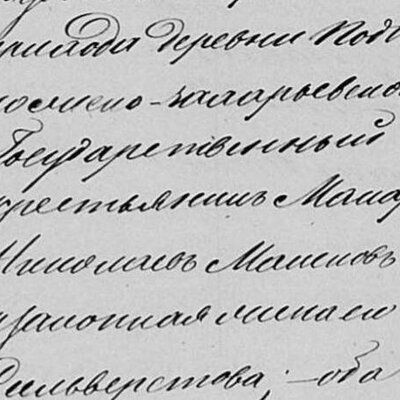 прихода деревни Подг
космено-захарьевско
Государственный
крестьянинъ Макар
Николаевъ Машковъ
и законная жена его
Сильверстова; оба